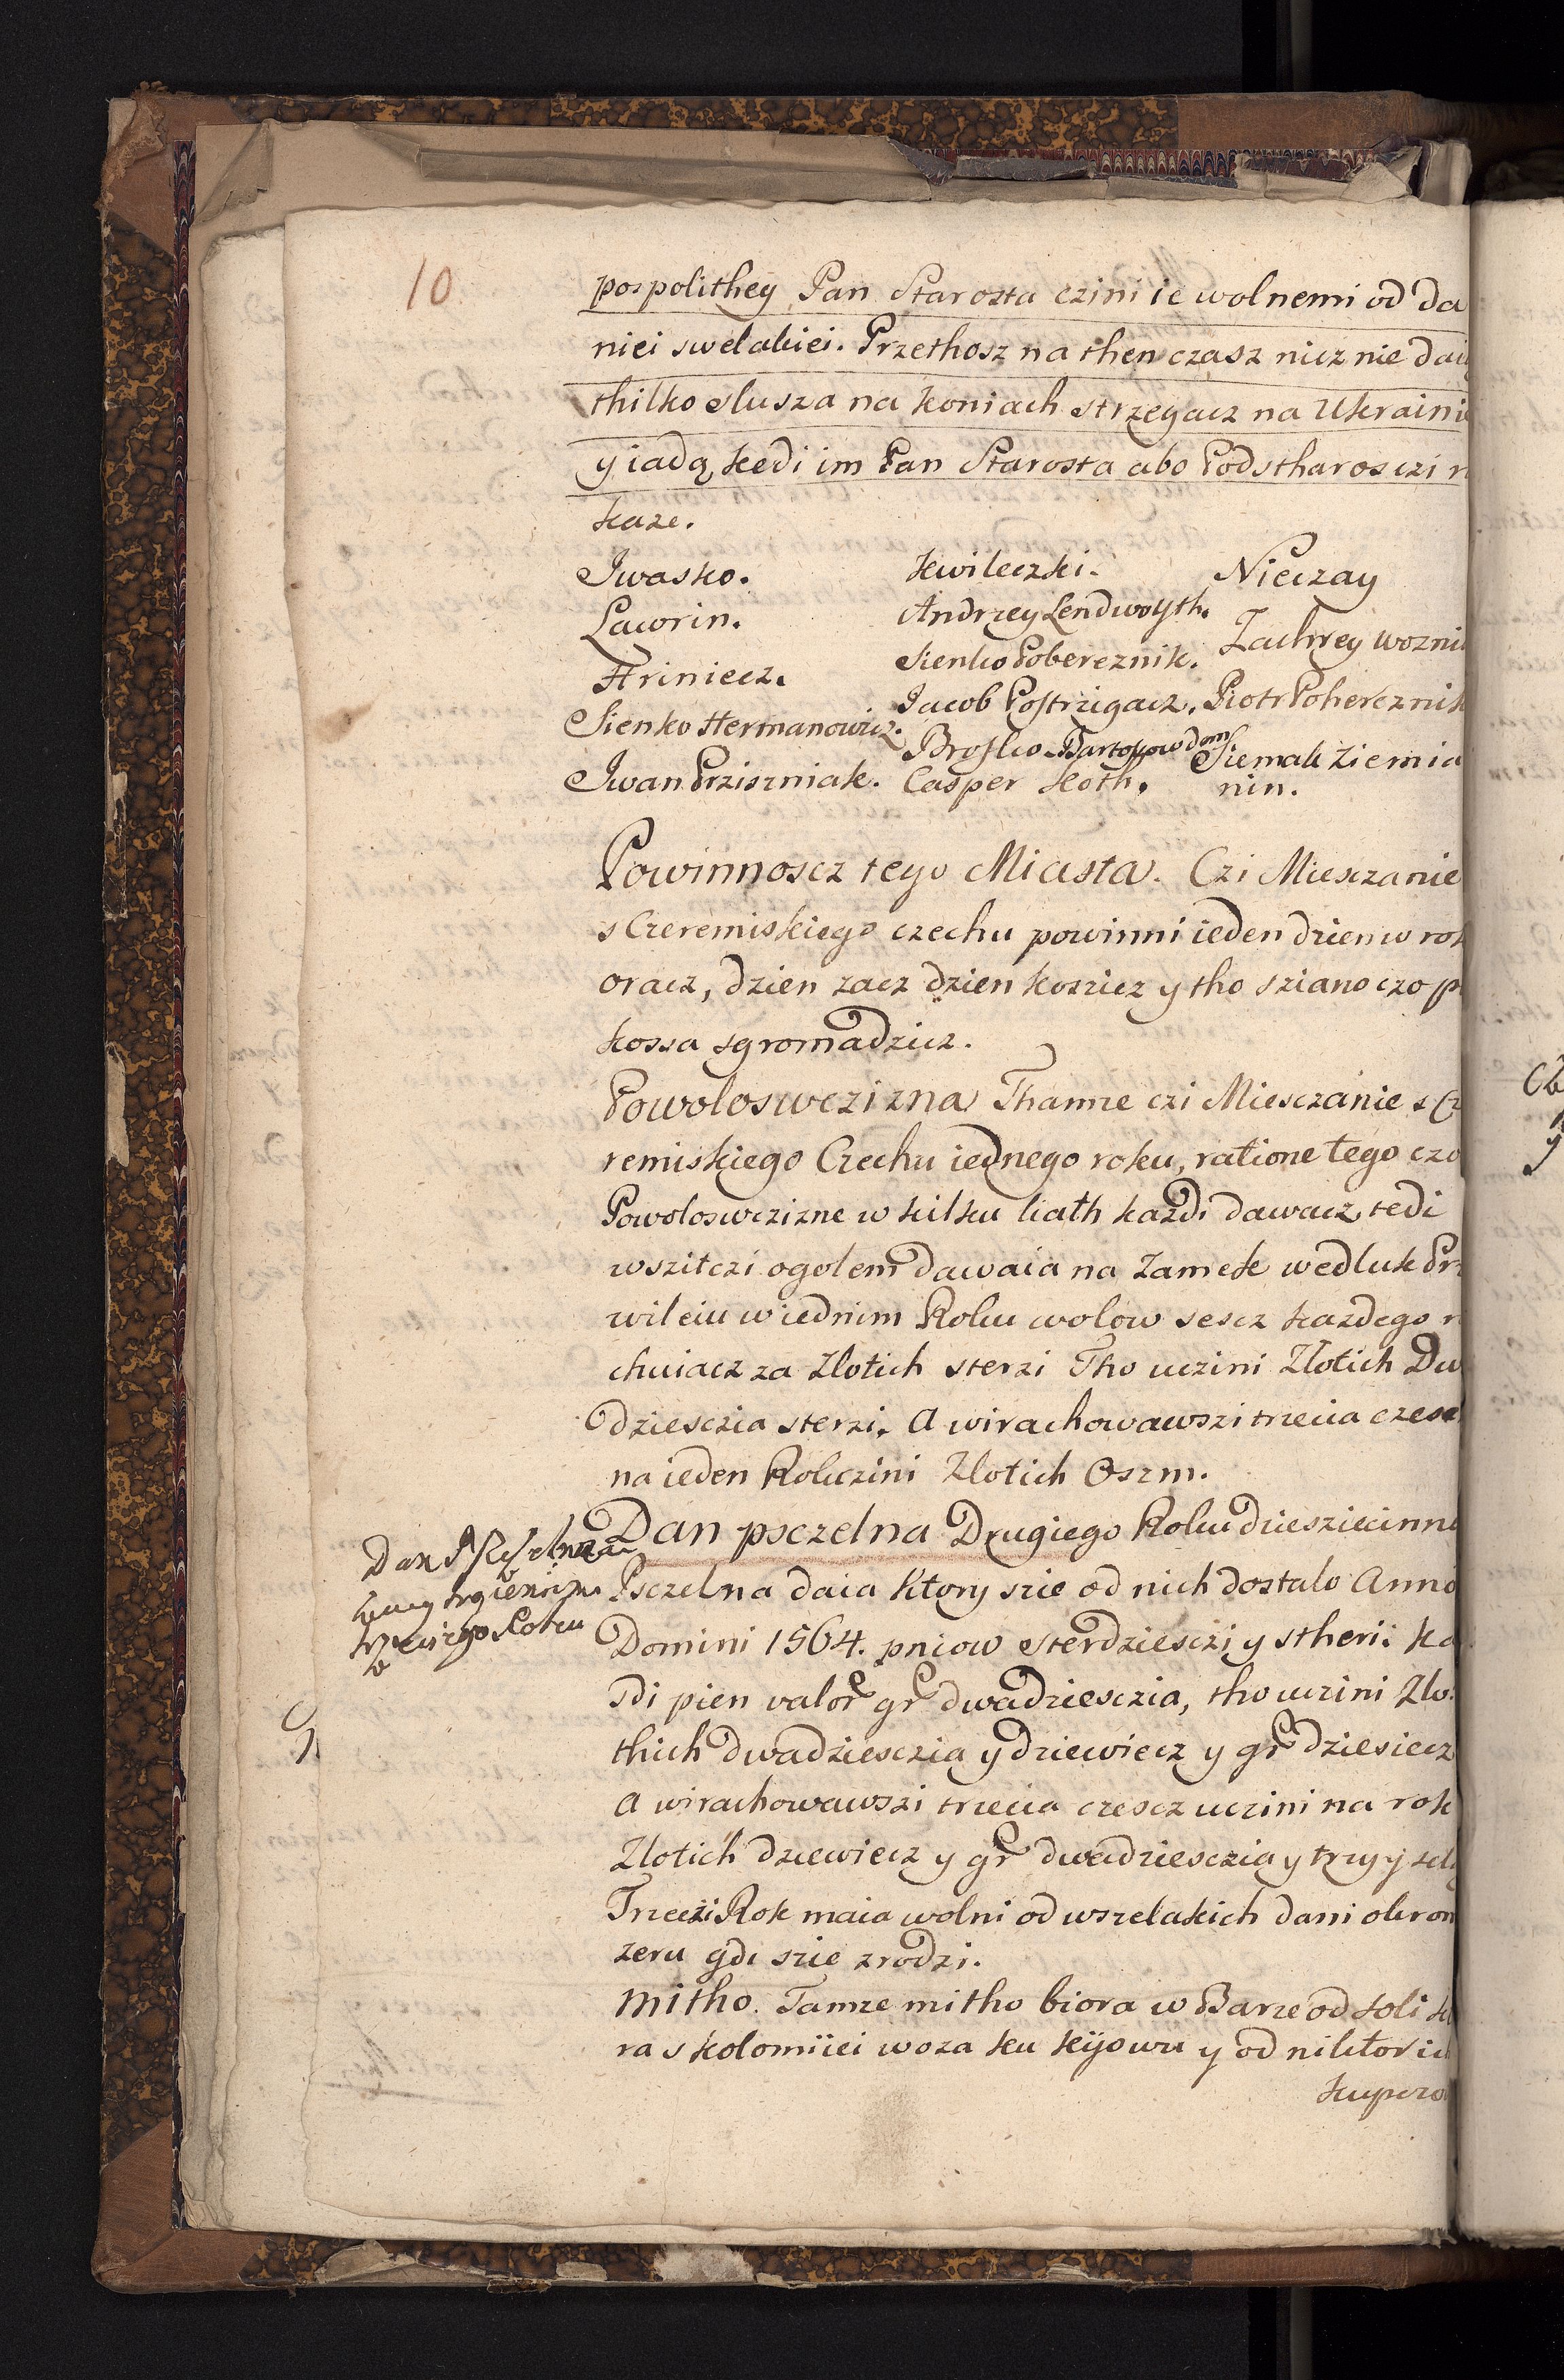 10
pospolithey Pan Starosta czini ie wolnemi od da
niei swelakiei. Przethosz na then czasz nicz nie daią
thilko slusza na koniach strzegacz na Ukrainie
y iadą, kedi im Pan Starosta abo Podstharosczi
kaze.
Iwasko.
Lawrin.
Hriniecz.
Sienko Hermanowicz.
Iwan Prziszniak.
Kwileczki.
Andrzey Lendwoyth.
Sienko Pobereznik.
Jacob Postrzigacz.
Brosko Bartossow dom
Casper Koth.
Nieczay
Zachrey wozni
Piotr Pohereznik
Siemak Ziemia
nin.
Powinnoscz tego Miasta. Czi Miesczanie
s Czeremiskiego czechu powinni ieden dzien w rok
oracz, dzien zacz dzien koszicz y tho sziano czo p
kossa sgromadzicz.
Powoloswczizna Thamze czi Miesczanie s Cz
remiskiego Czechu iednego roku, ratione tego czo
Powoloswczizne w kilku liath każdi dawacz, tedi
wszitczi ogolem dawaia na Zamek wedluk Pr
wileiu w iednim Roku wolow sescz każdego r
chuiacz za Zlotich sterzi Tho uczini Zlotich Dw
dziesczia sterzi. A wirachowawszi trzecia czesc
na ieden Rok czini Zlotich Oszm.
Dan psczelna Drugiego Roku dziesziecinne
Psczelna daia ktory szie od nich dostalo Anno
Domini 1564. pniow sterdziesczi y stheri: ka
sdi pien valor gr dwadziesczia, tho uczini Zlo.
thich dwadziesczia y dziewiecz y gr dziesiecz
A wirachowawszi trzecia czescz uczini na rok
Zlotich dziewiecz y gr dwadziesczia y trzy y
Trzeczi Rok maia wolni od wszelakich dani okrom
zeru gdi szie zrodzi.
Mitho. Tamze mitho biora w Barze od soli
ra s Kolomiiei woza ku Kijowu y od niktorich
kupczo
Dan Psczelna
trzeciego Roku